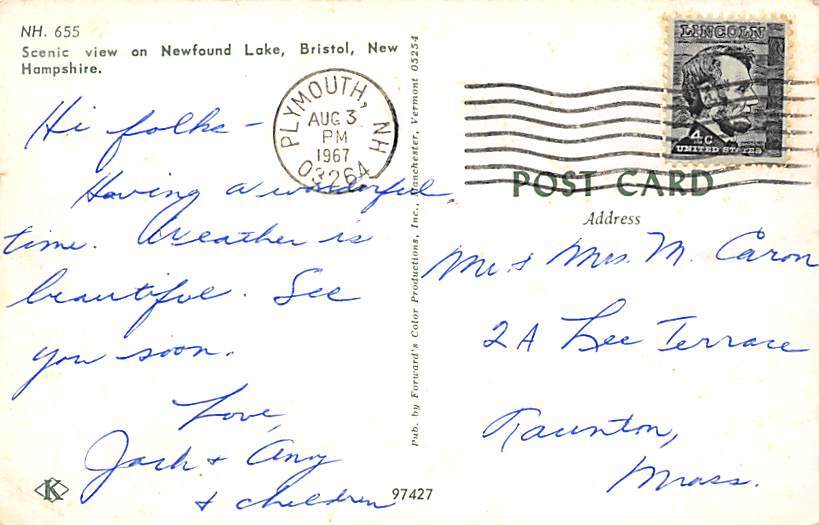 NH. 655
Scenic view on Newfound Lake, Bristol, New
Hampshire.
Hi folks -
Having a wonderful
time. Weather is
beautiful. See
you soon.
Love,
Jack + Amy
+ children
K
97427
PLYMOUTH, NH
AUG 3
PM
1967
03264
Pub. by Forward's Color Productions, Inc., Manchester, Vermont 05254
LINCOLN
4c
UNITED STATES
POST CARD
Address
Mr. & Mrs. M. Caron
2A Lee Terrace
Taunton,
Mass.